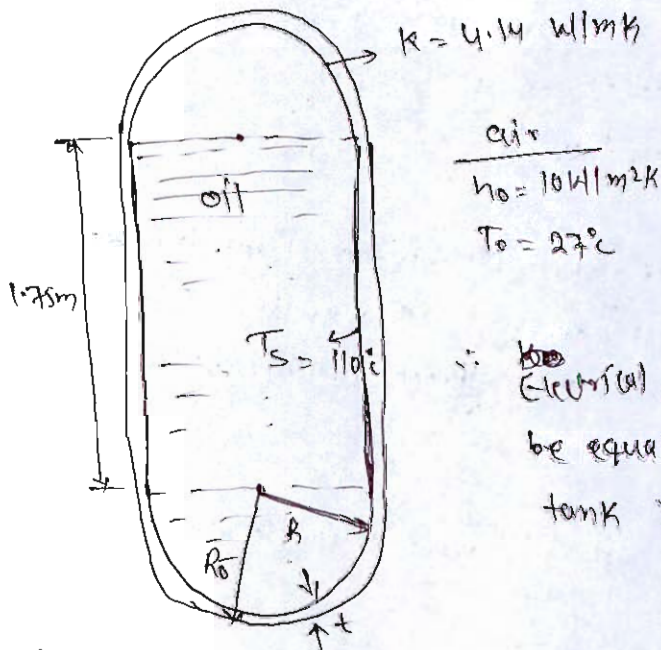 K = 4.14 W/mK
air
h0 = 10 W/m²K
T0 = 27°C
oil
1.75m
Ts = 110°C
∴ Electrical
be equa
tank
R
R0
t